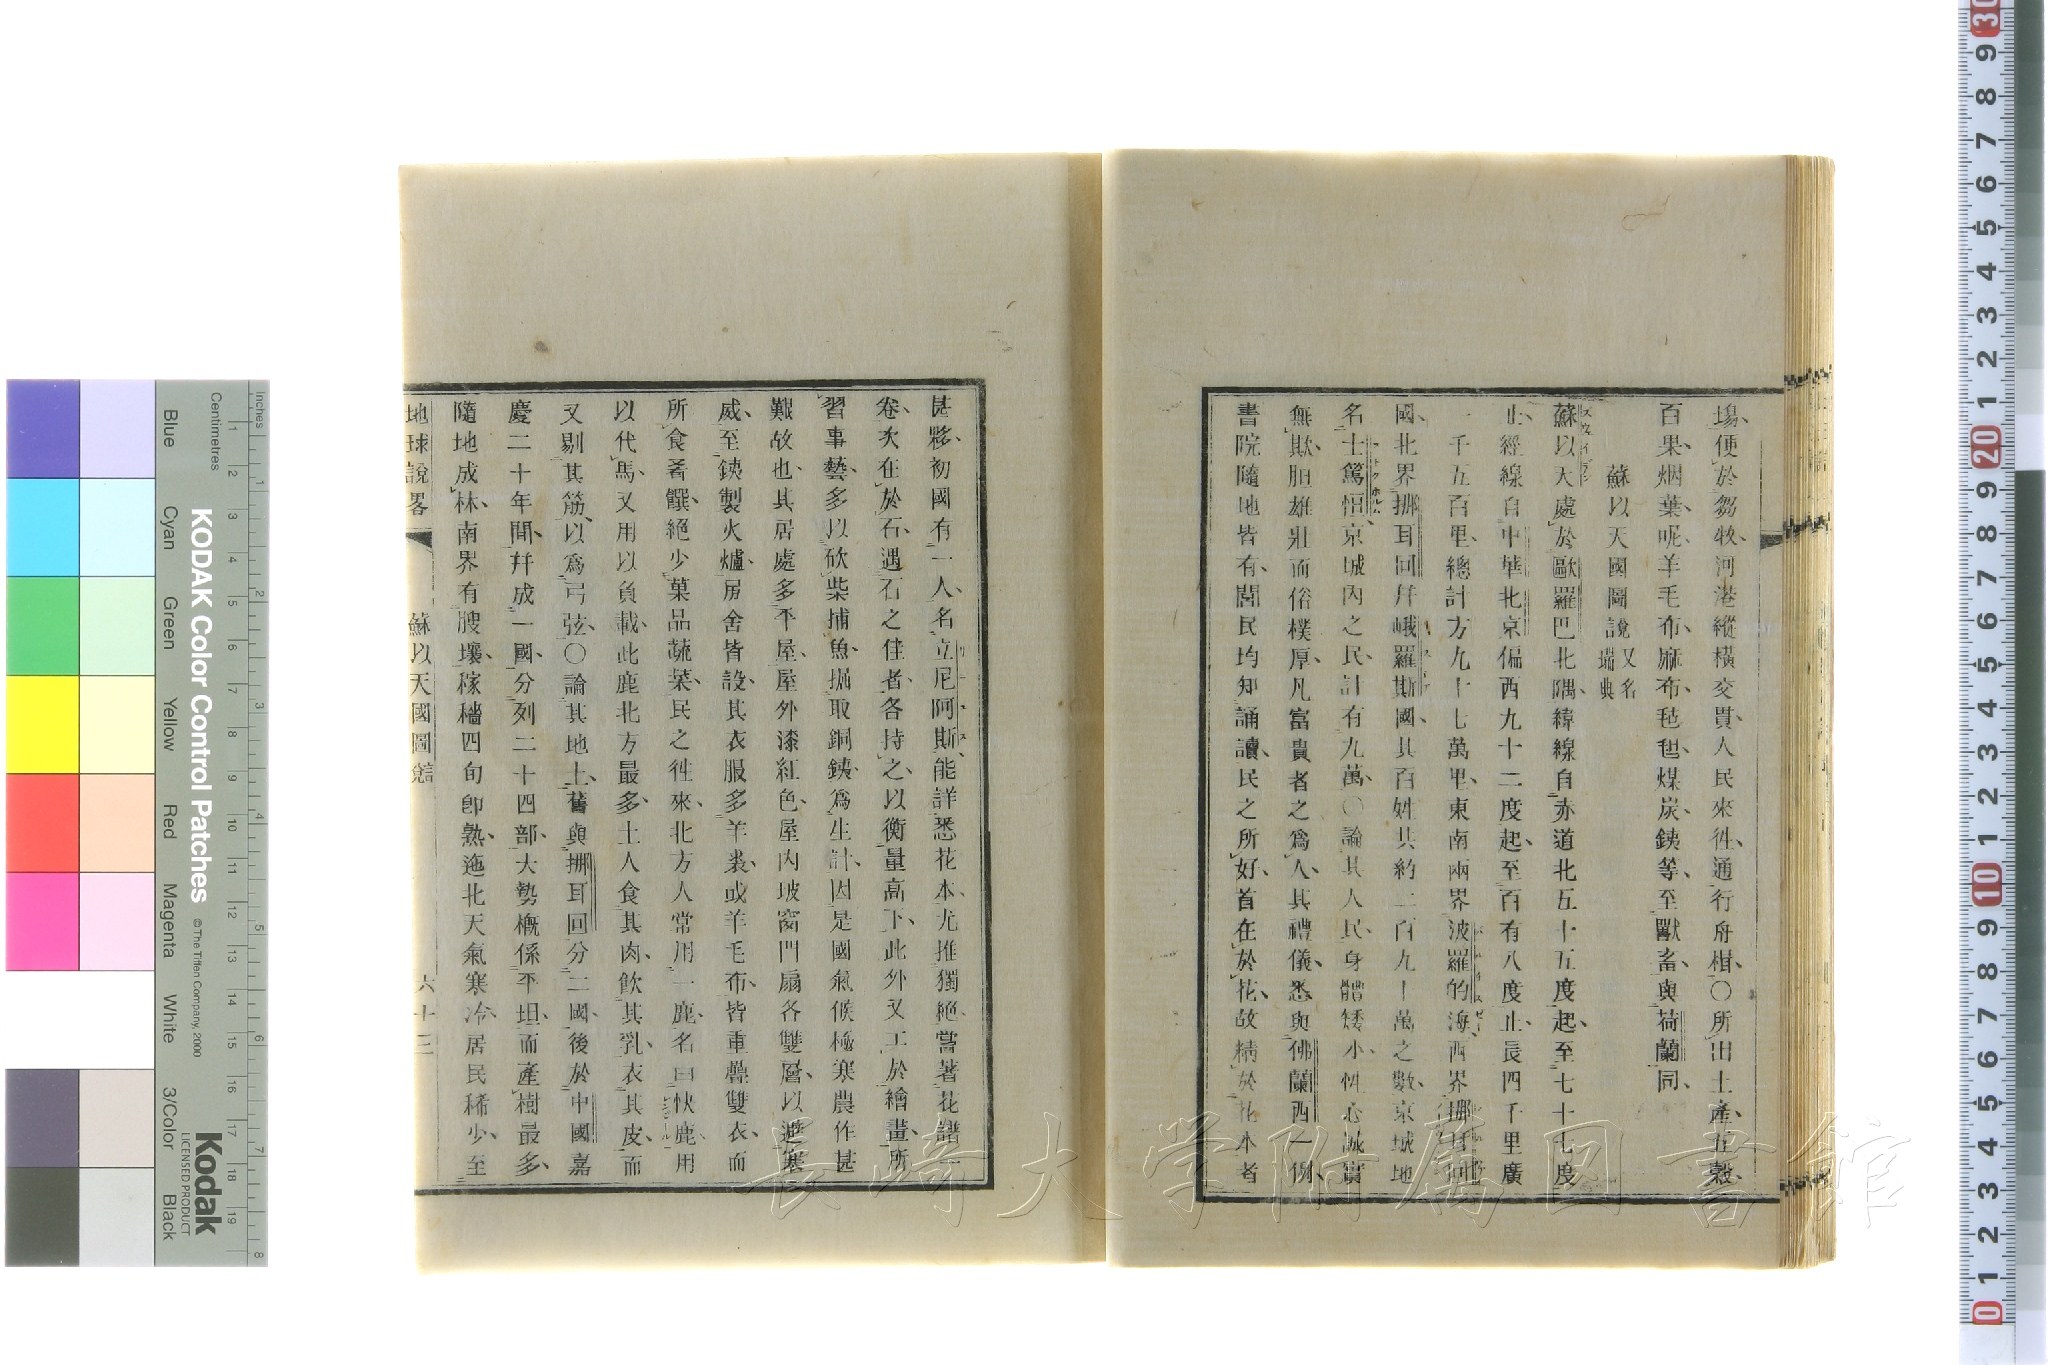 塲便於芻牧河港縱橫交貫人民來徃通行舟楫〇所出土産五穀
百果烟葉呢羊毛布麻布毡毯煤炭銕等至獸畜與荷蘭同
蘇以天國圖說又名瑞典
蘇以天處於歐羅巴北隅緯線自赤道北五十五度起至七十七度
止經線自中華北京偏西九十二度起至百有八度止長四千里廣
一千五百里總計方九十七萬里東南兩界波羅的海西界挪耳回
國北界挪耳回幷峨羅斯國其百姓共約二百九十萬之數京城地
名士篤恒京城內之民計有九萬〇論其人民身體矮小性心誠實
無欺胆雄壯而俗樸厚凡富貴者之爲人其禮儀悉與佛蘭西一例
書院隨地皆有閭民均知誦讀民之所好首在於花故精於花本者
甚夥初國有一人名立尼阿斯能詳悉花本尤推獨絕嘗著花譜一
卷次在於石遇石之佳者各持之以衡量高下此外又工於繪畫所
習事藝多以砍柴捕魚掘取銅銕爲生計因是國氣候極寒農作甚
艱故也其居處多平屋屋外漆紅色屋內坡窗門扇各雙層以避寒
威至銕製火爐房舍皆設其衣服多羊裘或羊毛布皆重疊雙衣而
所食肴饌絕少菓品蔬菜民之徃來北方人常用一鹿名曰快鹿用
以代馬又用以負載此鹿北方最多土人食其肉飲其乳衣其皮而
又剔其筋以爲弓弦〇論其地土舊與挪耳回分二國後於中國嘉
慶二十年間幷成一國分列二十四部大勢槪係平坦而產樹最多
隨地成林南界有腴壤稼穡四旬卽熟迤北天氣寒冷居民稀少至
地球說畧 蘇以天國圖說 六十三
長崎大学附属図書館
KODAK Color Control Patches
© The Tiffen Company, 2000
Kodak
LICENSED PRODUCT
Inches
Centimetres
Blue Cyan Green Yellow Red Magenta White 3/Color Black